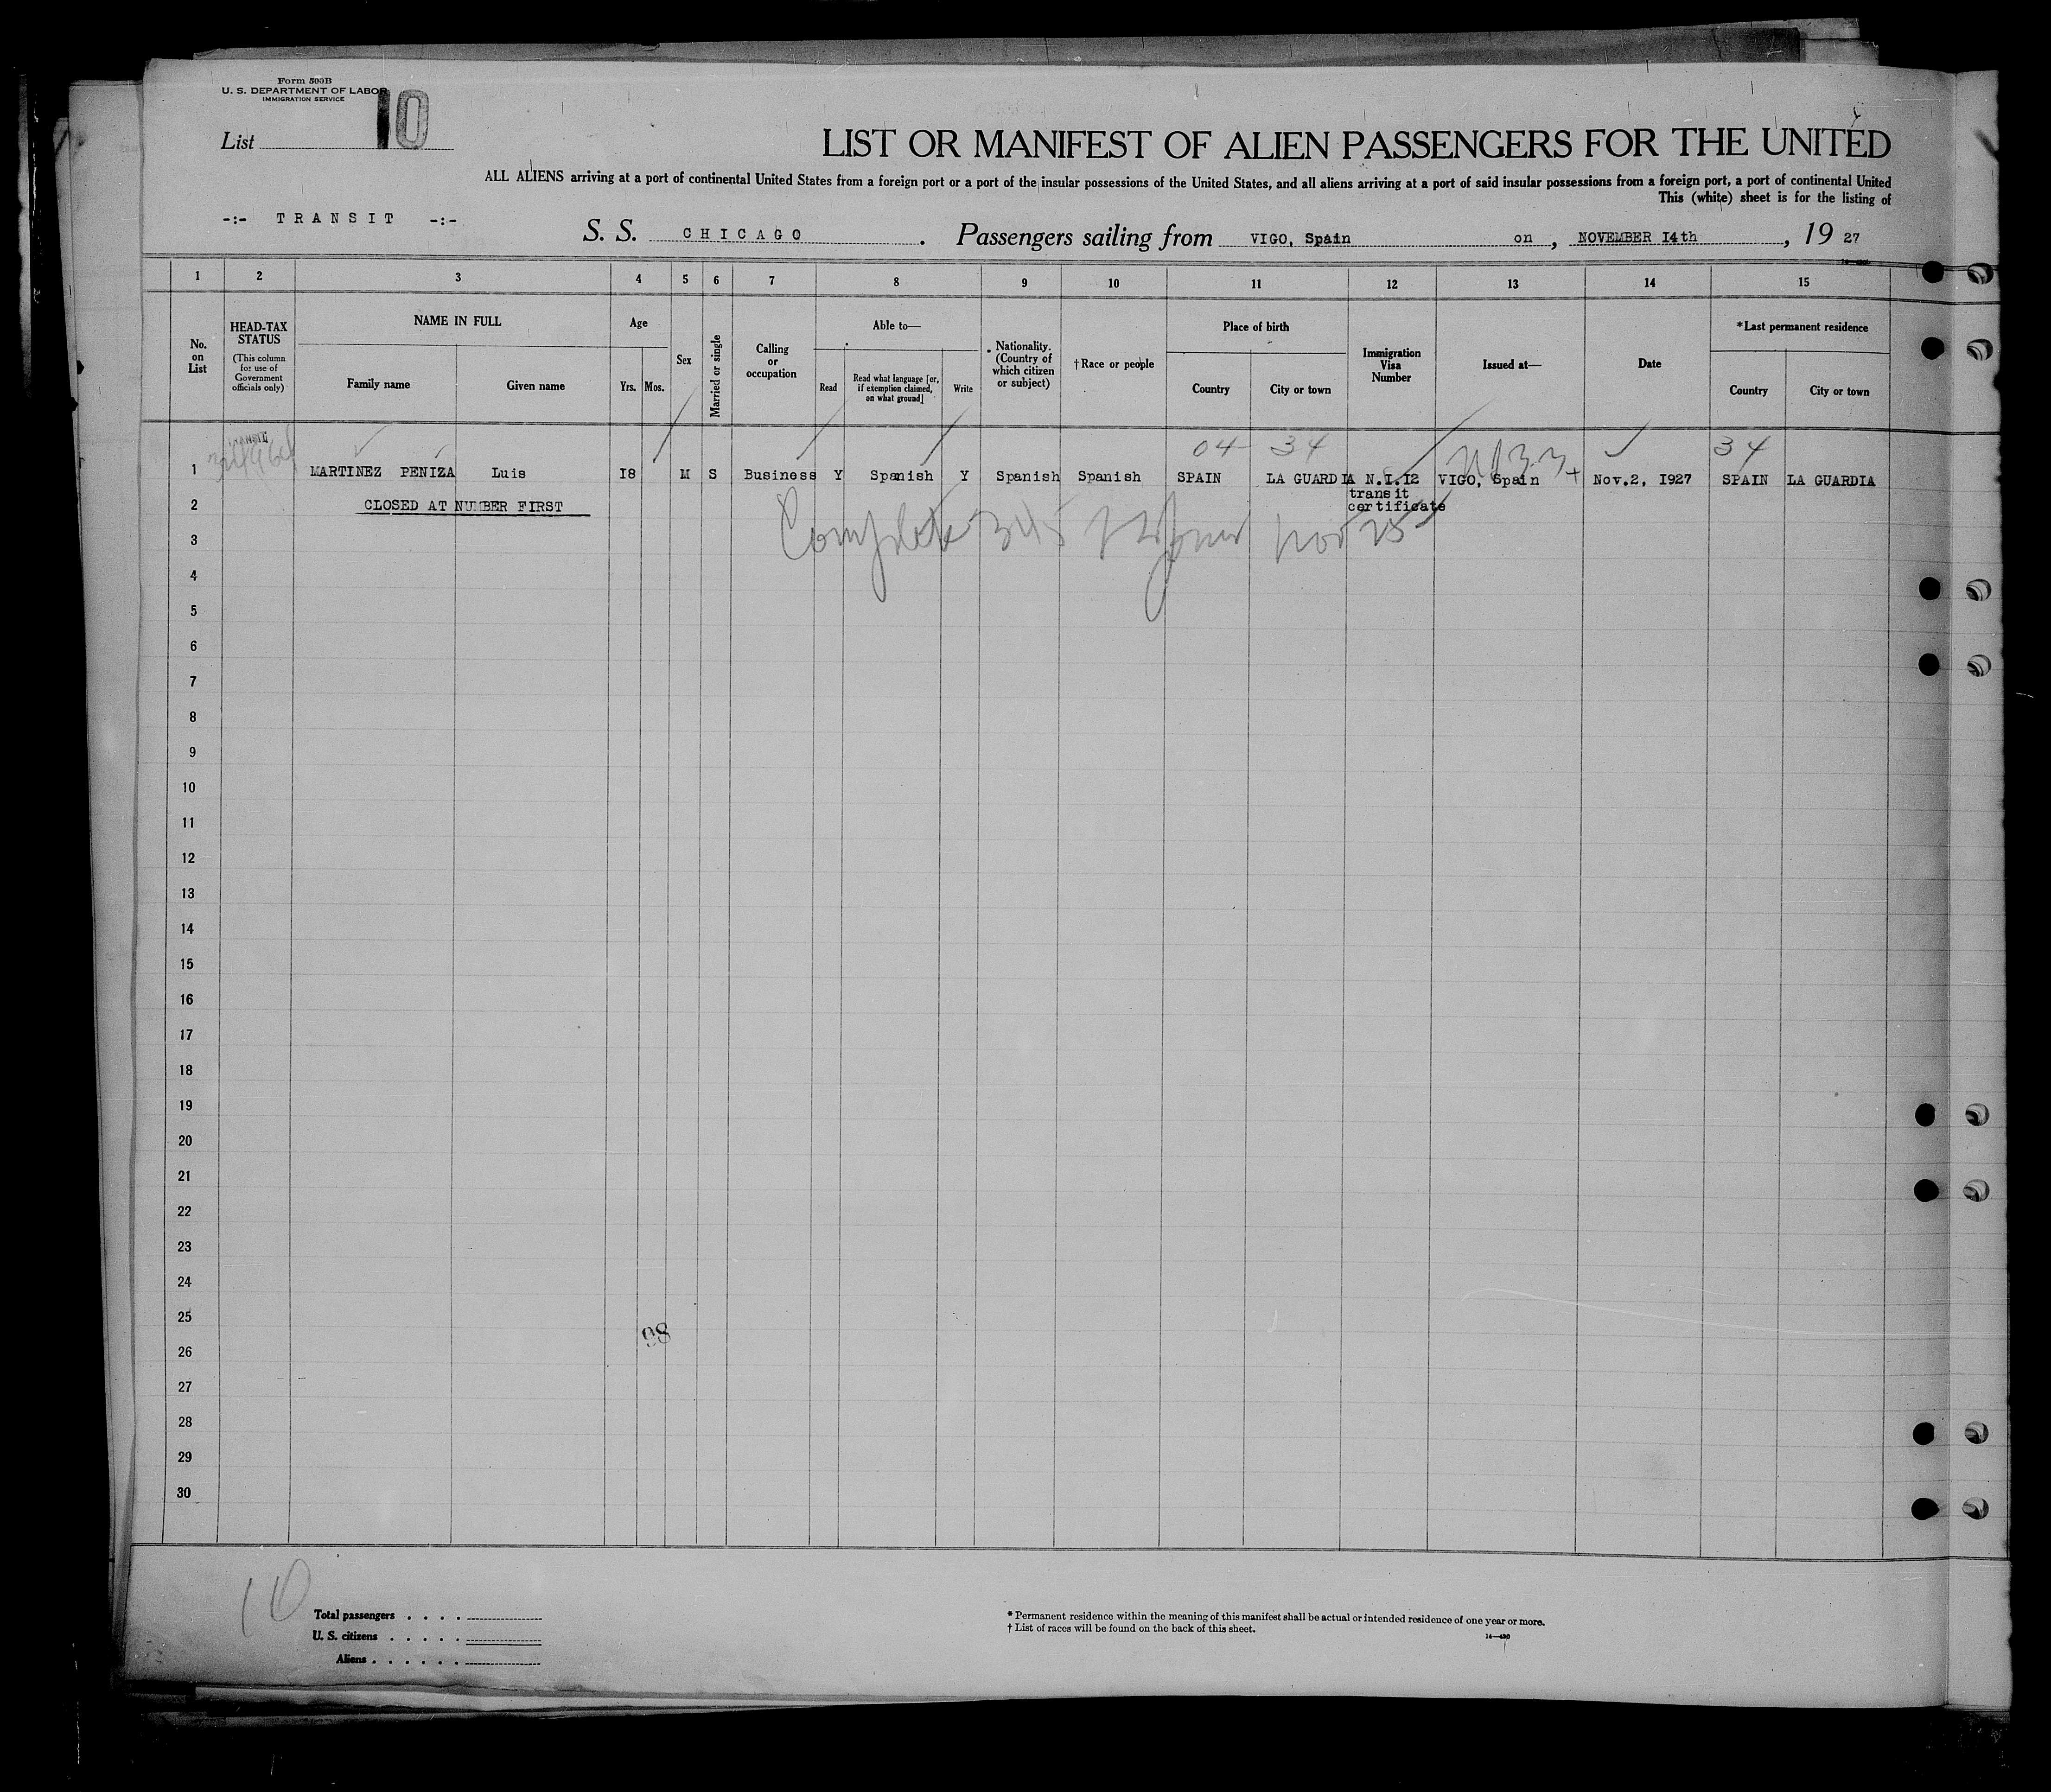 Form 500B
U. S. DEPARTMENT OF LABOR
IMMIGRATION SERVICE
List 10
LIST OR MANIFEST OF ALIEN PASSENGERS FOR THE UNITED
ALL ALIENS arriving at a port of continental United States from a foreign port or a port of the insular possessions of the United States, and all aliens arriving at a port of said insular possessions from a foreign port, a port of continental United
This (white) sheet is for the listing of
-:- TRANSIT -:-
S. S. CHICAGO. Passengers sailing from VIGO, Spain on, NOVEMBER I4th, 19 27
1 2 3 4 5 6 7 8 9 10 11 12 13 14 15
No. on List
HEAD-TAX STATUS
(This column for use of Government officials only)
NAME IN FULL
Family name
Given name
Age
Yrs. Mos.
Sex
Married or single
Calling or occupation
Able to—
Read
Read what language [or, if exemption claimed, on what ground]
Write
Nationality. (Country of which citizen or subject)
†Race or people
Place of birth
Country
City or town
Immigration Visa Number
Issued at—
Date
*Last permanent residence
Country
City or town
04 34 34
1 MARTINEZ PENIZA Luis I8 M S Business Y Spanish Y Spanish Spanish SPAIN LA GUARDIA N.I.I2 VIGO, Spain Nov.2, I927 SPAIN LA GUARDIA
transit
certificate
2 CLOSED AT NUMBER FIRST
Nov 25
3
4
5
6
7
8
9
10
11
12
13
14
15
16
17
18
19
20
21
22
23
24
25
98
26
27
28
29
30
10
Total passengers . . . .
U. S. citizens . . . . .
Aliens . . . . . .
* Permanent residence within the meaning of this manifest shall be actual or intended residence of one year or more.
† List of races will be found on the back of this sheet.